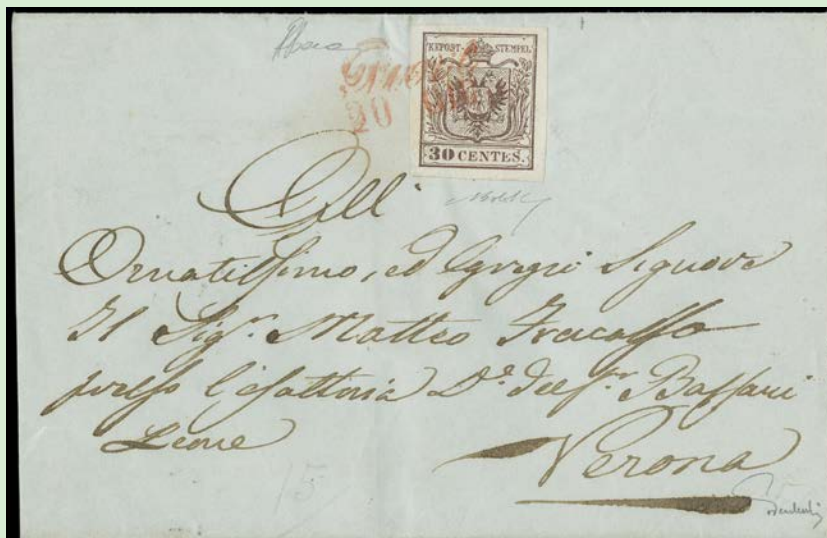 KKPOST-STEMPEL
20
30 CENTES.
All'
Ornatissimo, ed Egregio Signore
Il Sigr. Matteo Fracasso
presso l'esattoria Dе. del Sr. Bassani
Leone
Verona
15